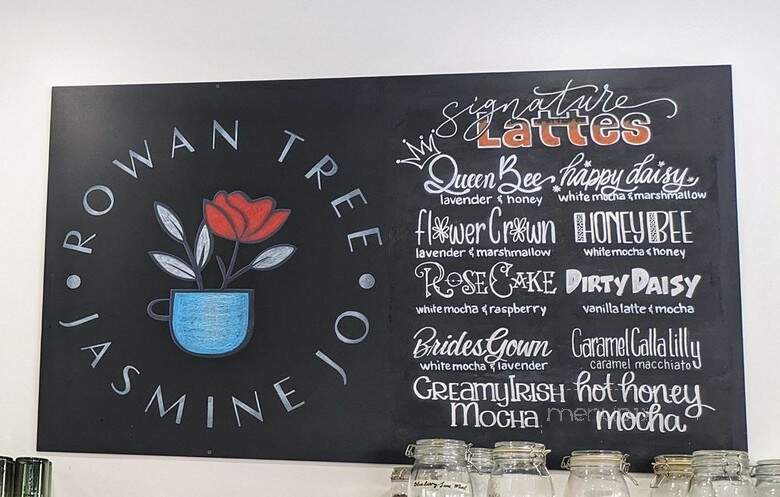 ROWAN TREE
JASMINE JO
signature
Lattes
Queen Bee
lavender & honey
happy daisy
white mocha & marshmallow
flower Crown
lavender & marshmallow
HONEY BEE
white mocha & honey
ROSE CAKE
white mocha & raspberry
DIRTY DAISY
vanilla latte & mocha
Brides Gown
white mocha & lavender
Caramel Calla lilly
caramel macchiato
CREAMY IRISH
MOCHA
hot honey
mocha